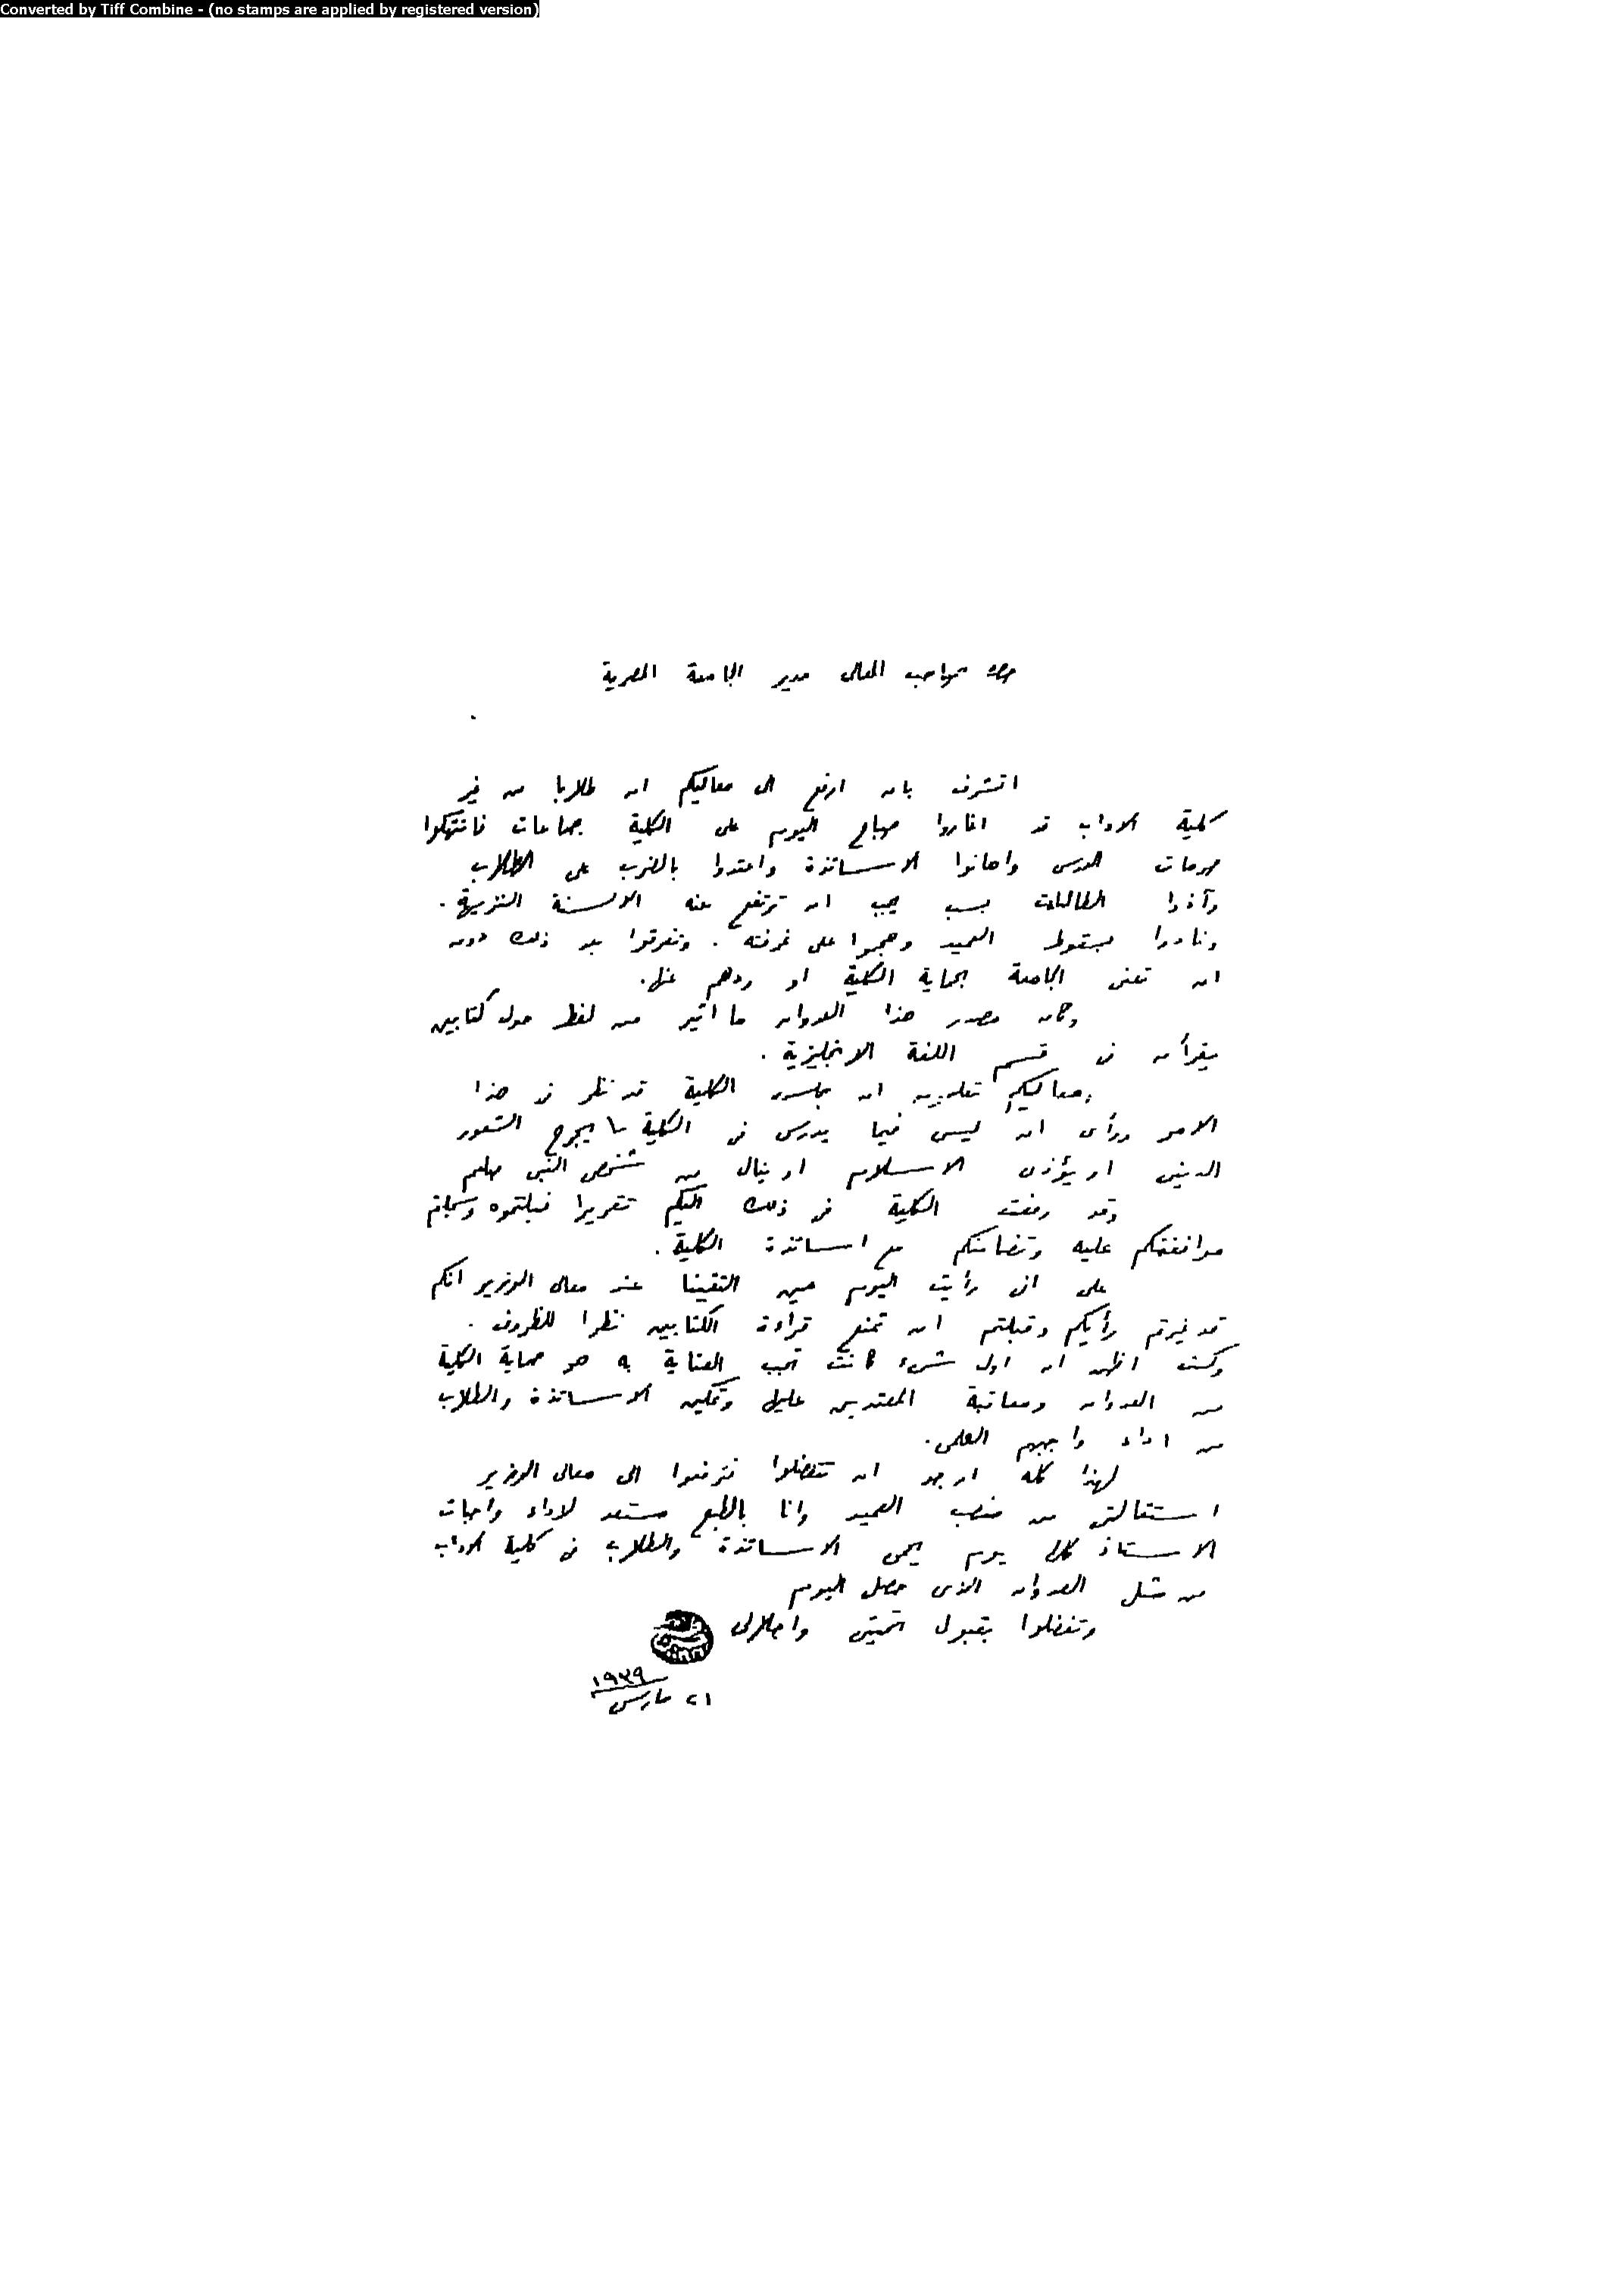 Converted by Tiff Combine - (no stamps are applied by registered version)
حضرة صاحب المعالى مدير الجامعة المصرية
اتشرف بان ارفع الى معاليكم ان طلابا من غير
كلية الاداب قد اغاروا صباح اليوم على الكلية جماعات فانتهكوا
حرمات الدرس واهانوا الاساتذة واعتدوا بالضرب على الطلاب
وآذوا الطالبات بسب يجب ان ترتفع عنه الالسنة النزيهة .
ونادوا بسقوط العميد وهجموا على غرفته . وتفرقوا بعد ذلك دون
ان تعنى الجامعة بحماية الكلية او ردهم عنها .
وكان مصدر هذا العدوان ما اثير من لغط حول كتابين
يقرأن فى قسم اللغة الانجليزية .
ومعاليكم تعلمون ان مجلس الكلية قد نظر فى هذا
الامر ورأى ان ليس فيما يدرس فى الكلية ما يجرح الشعور
الدينى او يؤذى الاسلام او ينال من شخص النبى صلعم
وقد رفعت الكلية فى ذلك اليكم تقريرا فقبلتموه وسجلتم
موافقتكم عليه وتضامنكم مع اساتذة الكلية .
على انى رأيت اليوم حين التقينا عند معالى الوزير انكم
قد غيرتم رأيكم وقبلتم ان تمنع قراءة الكتابين نظرا للظروف .
وكنت اظن ان اول شىء كانت تجب العناية به هو حماية الكلية
من العدوان ومعاقبة المعتدين عليها وتمكين الاساتذة والطلاب
من اداء واجبهم العلمى .
لهذا كله ارجو ان تتفضلوا فترفعوا الى معالى الوزير
استقالتى من منصب العميد وانا بالطبع مستعد لاداء واجبات
الاستاذ كل يوم يحمى الاساتذة والطلاب فى كلية الاداب
من مثل العدوان الذى حصل اليوم
وتفضلوا بقبول تحيتى واجلالى
١٩٣٩
٢١ مارس